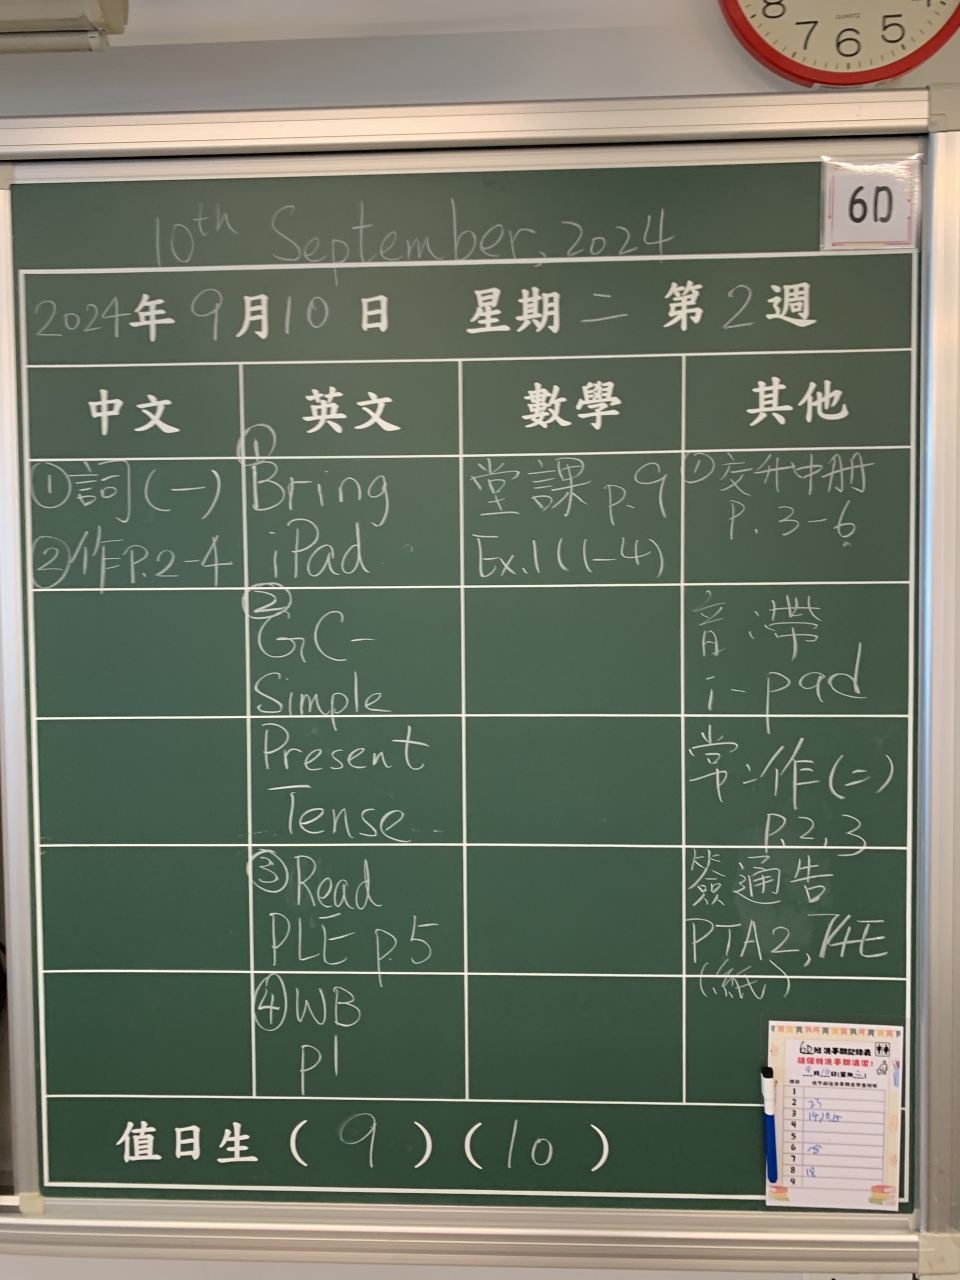 8 7 6 5 4
QUARTZ
6D
10th September, 2024
2024年9月10日 星期二 第2週
中文 英文 數學 其他
①詞(一)
②作P.2-4
①
Bring
iPad
②
GC-
Simple
Present
Tense
③Read
PLE p.5
④WB
p1
堂課 p.9
Ex.1(1-4)
①交升中册
P.3-6
音:帶
i-pad
常:作(二)
P.2,3
簽通告
PTA2, 74E
(紙)
6D班洗手間記錄表
請保持洗手間清潔!
9月10日(星期二)
1
2 23
3
4
5
6
7
8 18
9
值日生(9)(10)